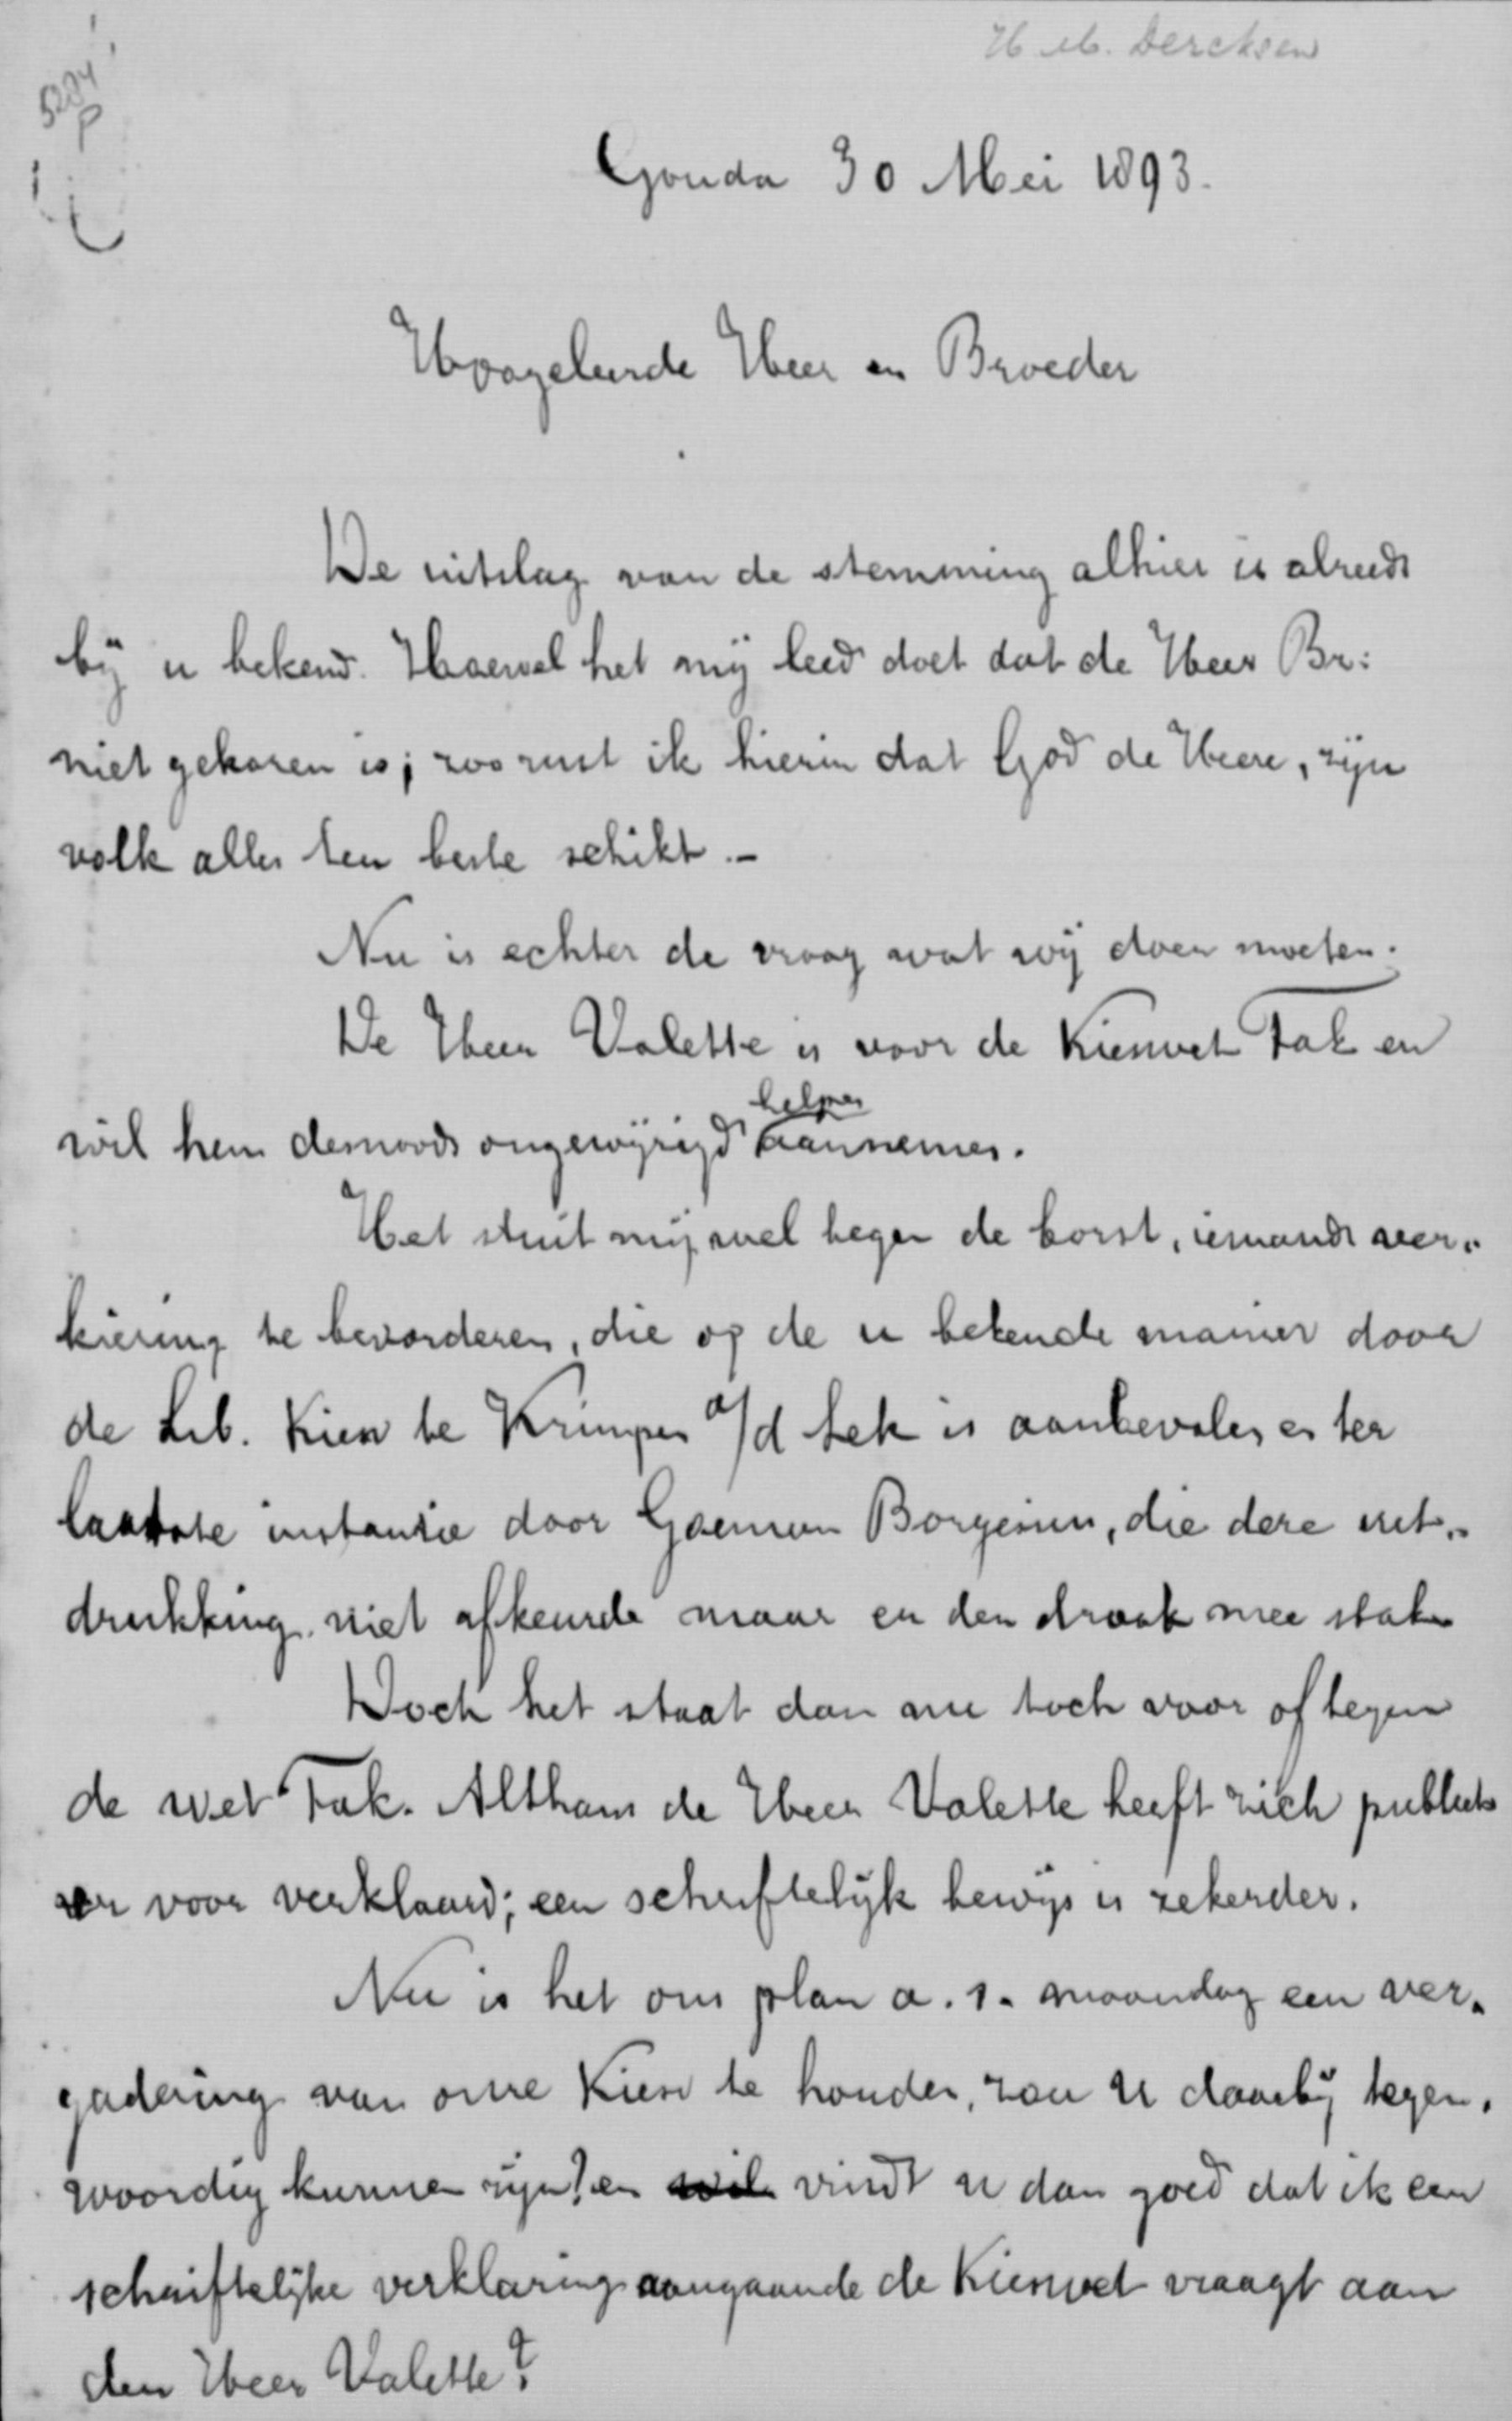 H. M. Dercksen
5204
P
Gouda 30 Mei 1893.
Hooggeleerde Heer en Broeder
De uitslag van de stemming alhier is alreeds
bij u bekend. Hoewel het mij leed doet dat de Heer Br:
niet gekozen is; zoo rust ik hierin dat God de Heere, zijn
volk alles ten beste schikt.-
Nu is echter de vraag wat wij doen moeten.
De Heer Valette is voor de Kieswet Tak en
wil hem desnoods ongewijzigd helpen aannemen.
Het stuit mij wel tegen de borst, iemands ver„
kiezing te bevorderen, die op de u bekende manier door
de Lib. Kiesv te Krimpen a/d Lek is aanbevolen en ter
laatste instantie door Goeman Borgesius, die deze uit„
drukking niet afkeurde maar er den draak mee stak
Doch het staat dan nu toch voor of tegen
de wet Tak. Althans de Heer Valette heeft zich publiek
er voor verklaard; een schriftelijk bewijs is zekerder.
Nu is het ons plan a.s. maandag een ver„
gadering van onze Kiesv te houden, zou U daarbij tegen„
woordig kunnen zijn? en wil vindt u dan goed dat ik een
schriftelijke verklaring aangaande de Kieswet vraagt aan
den Heer Valette?